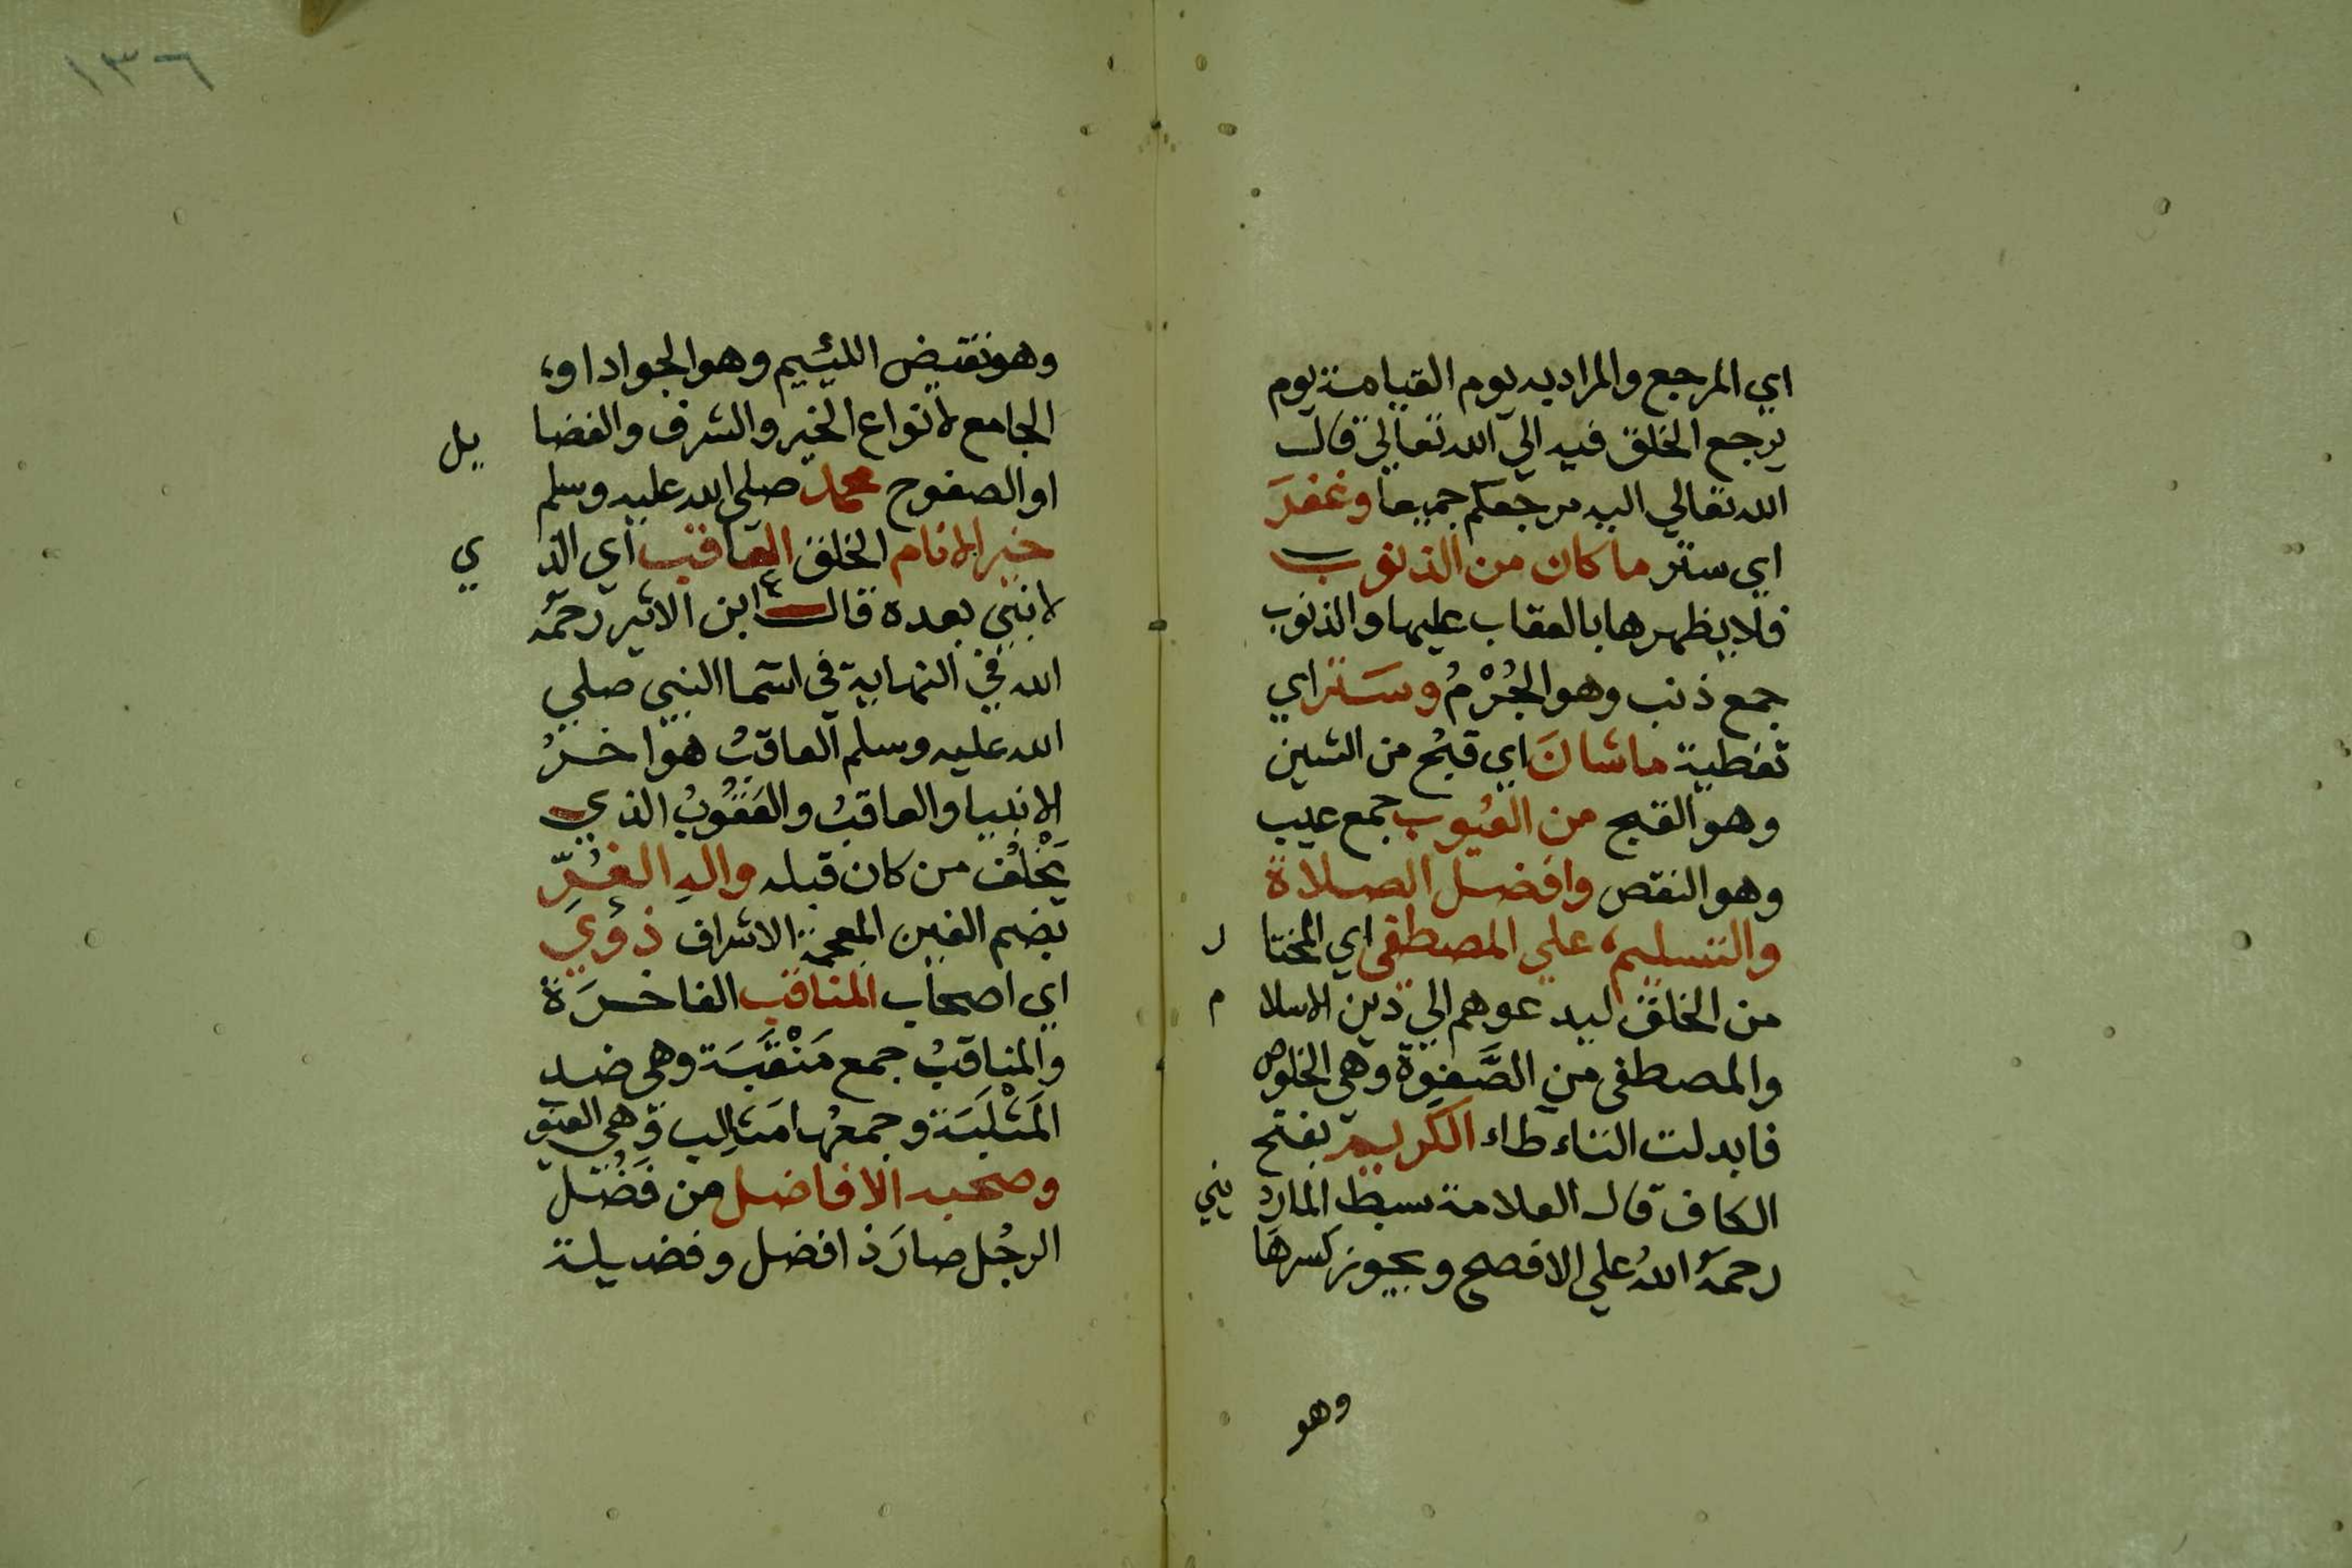 اي المرجع والمراد به يوم القيامة يوم
يرجع الخلق فيه الي الله تعالي قال
الله تعالي اليه مرجعكم جميعا وغفرَ
اي ستر ما كان من الذنوب
فلا يظهرها بالعقاب عليها والذنوب
جمع ذنب وهو الجُرْمُ وسَتر اي
تغطية ما شانَ اي قبُح من الشين
وهو القبح من العُيوب جمع عيب
وهو النقص وافضل الصلاة
والتسليم، علي المصطفى اي المختار
من الخلق ليدعوهم الي دين الاسلام
والمصطفى من الصَّفوة وهي الخلوص
فابدلت التاء طاء الكريم بفتح
الكاف قال العلامة سبط المارديني
رحمهُ اللهُ علي الافصح ويجوز كسرها
وهو
١٣٦
وهو نقيض اللئيم وهو الجواد او
الجامع لانواع الخير والشرف والفضايل
او الصفوح محمد صلي الله عليه وسلم
خير الانام الخلق العاقب اي الذي
لا نبي بعده قال ابن الاثير رحمه
الله في النهاية في اسما النبي صلي
الله عليه وسلم العاقبُ هو اخرُ
الانبيا والعاقبُ والعَقُوبُ الذي
يَخْلُف من كان قبله والهِ الغُرِّ
بضم الغين المعجمة الاشراف ذوي
اي اصحاب المناقب الفاخرَة
والمناقبُ جمع مَنْقَبَة وهي ضد
المَثْلَبَة وجمعها مَثالِب وهي العيو
وصحبه الافاضل من فَضُل
الرجُل صارَ ذا فضل وفضيلة